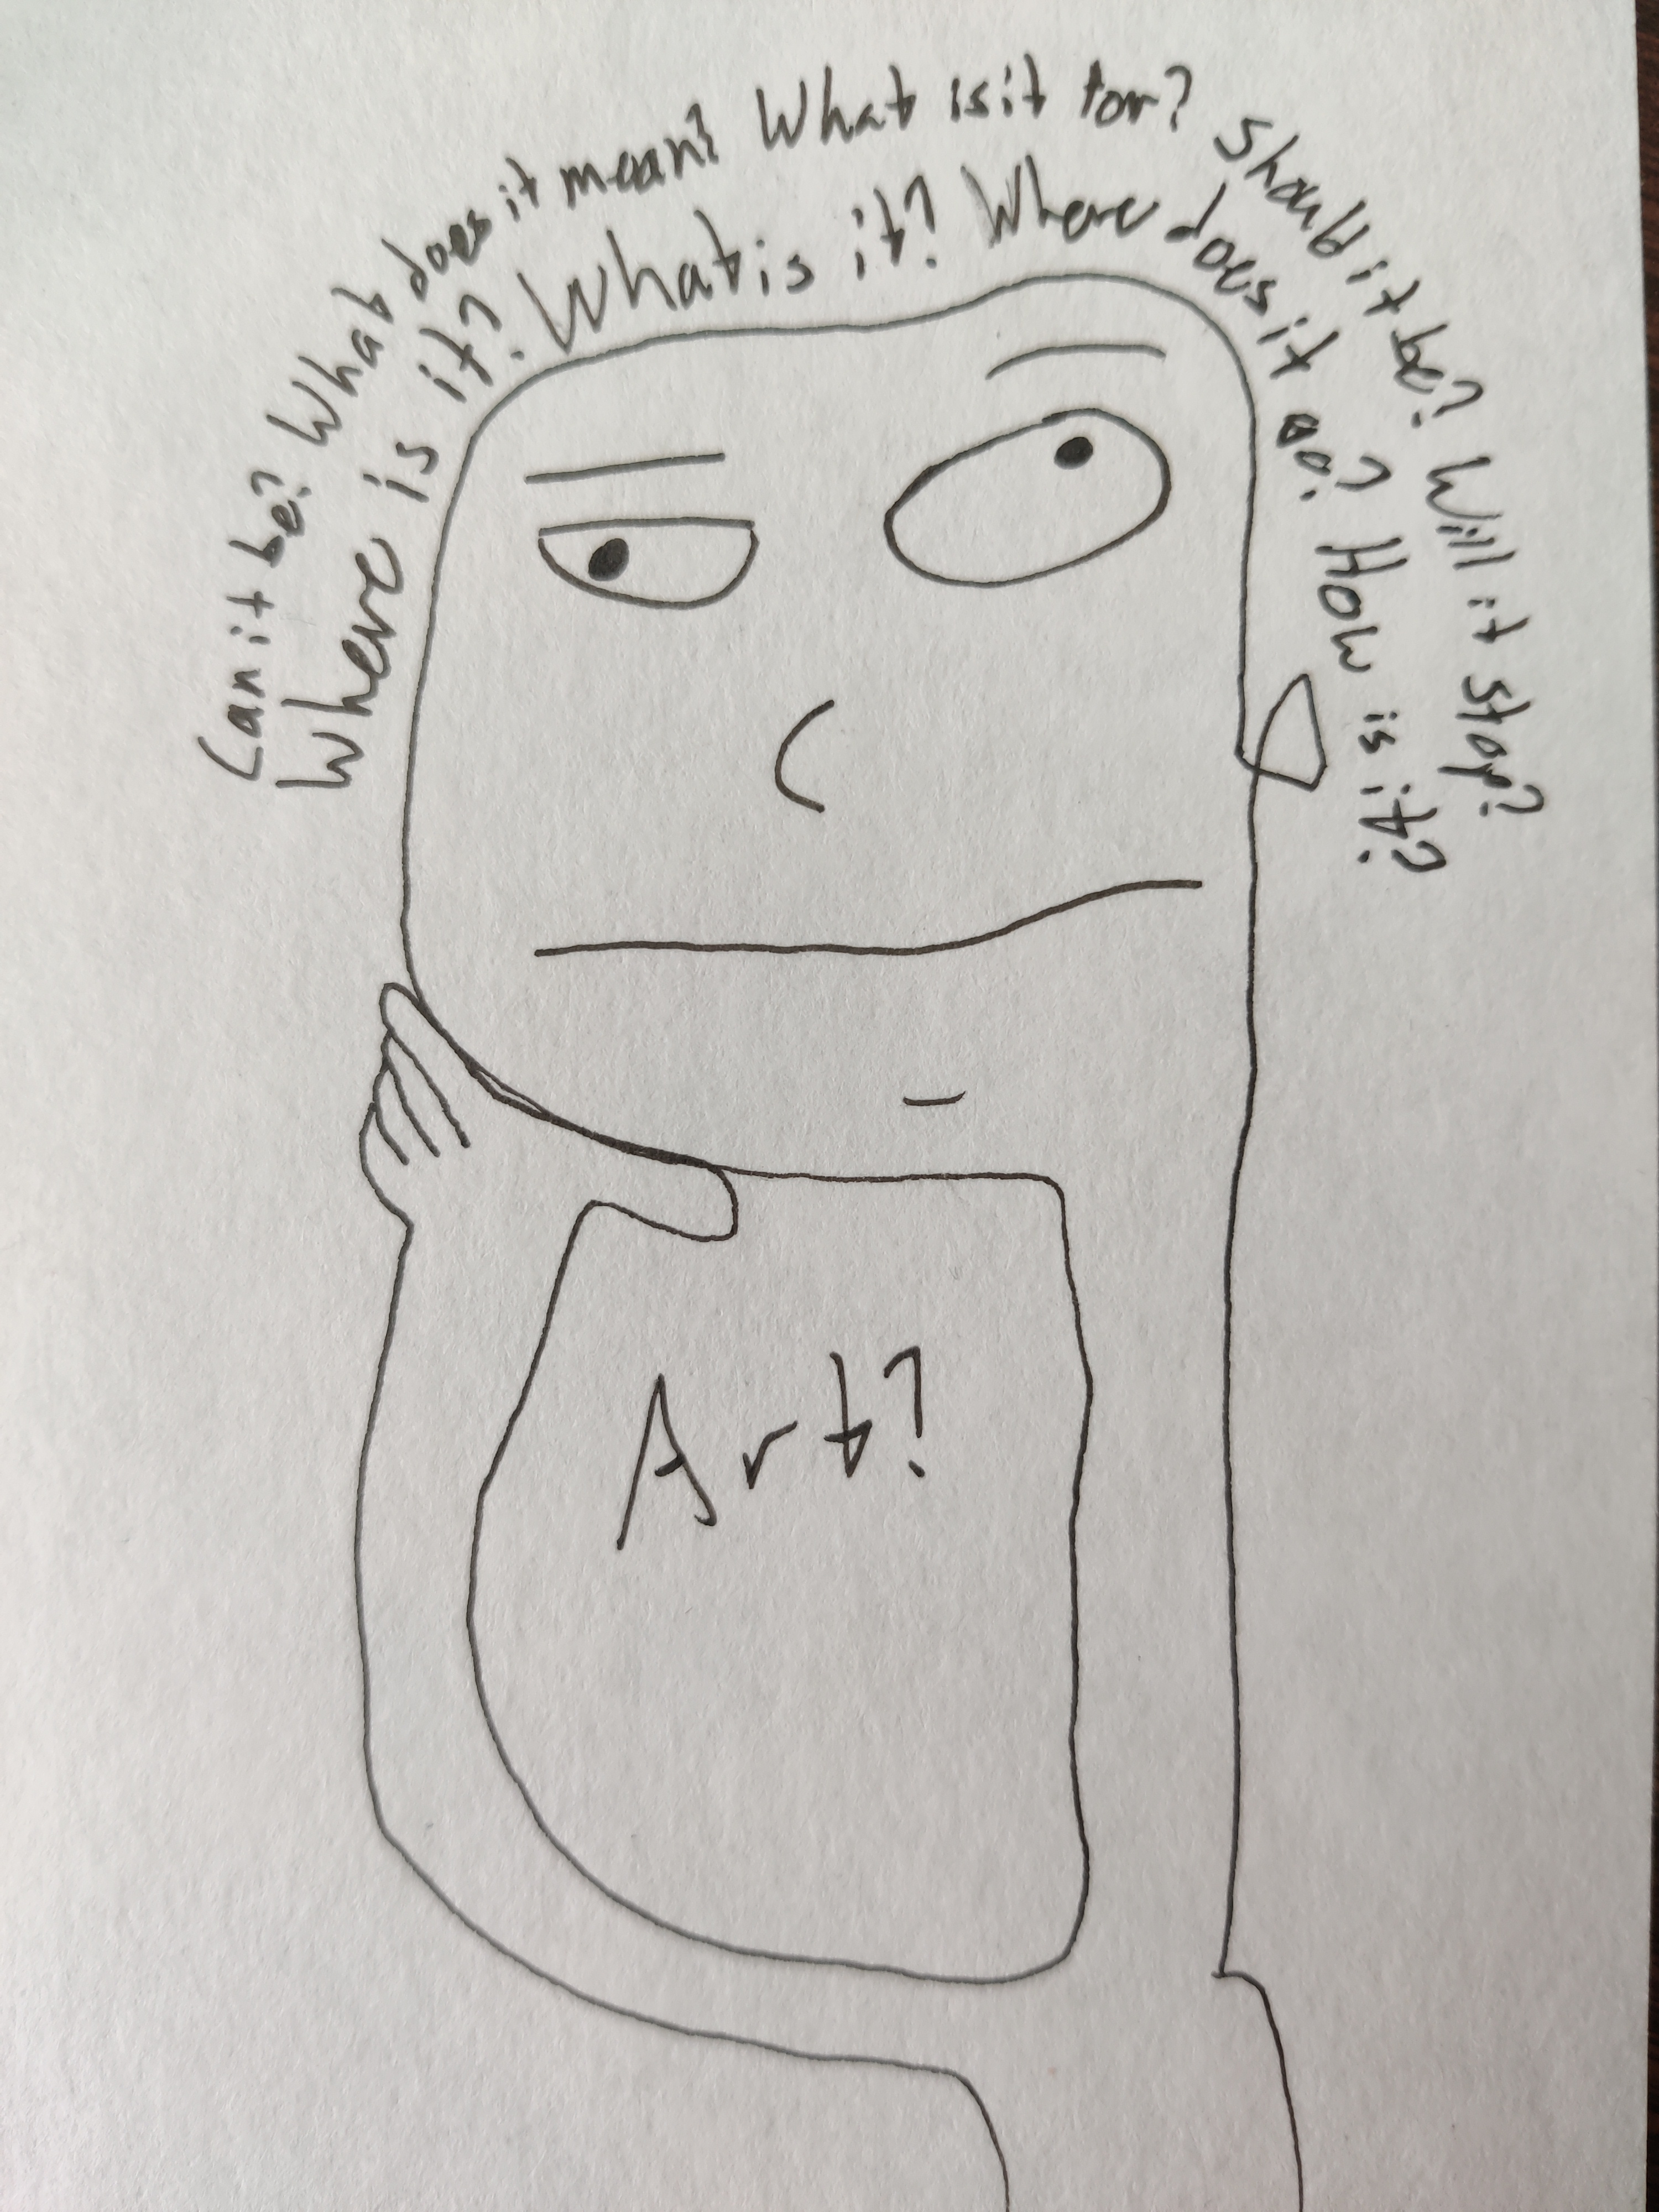 Can it be? What does it mean? What is it for? Should it be? Will it stop?
Where is it? What is it? Where does it go? How is it?
Art?